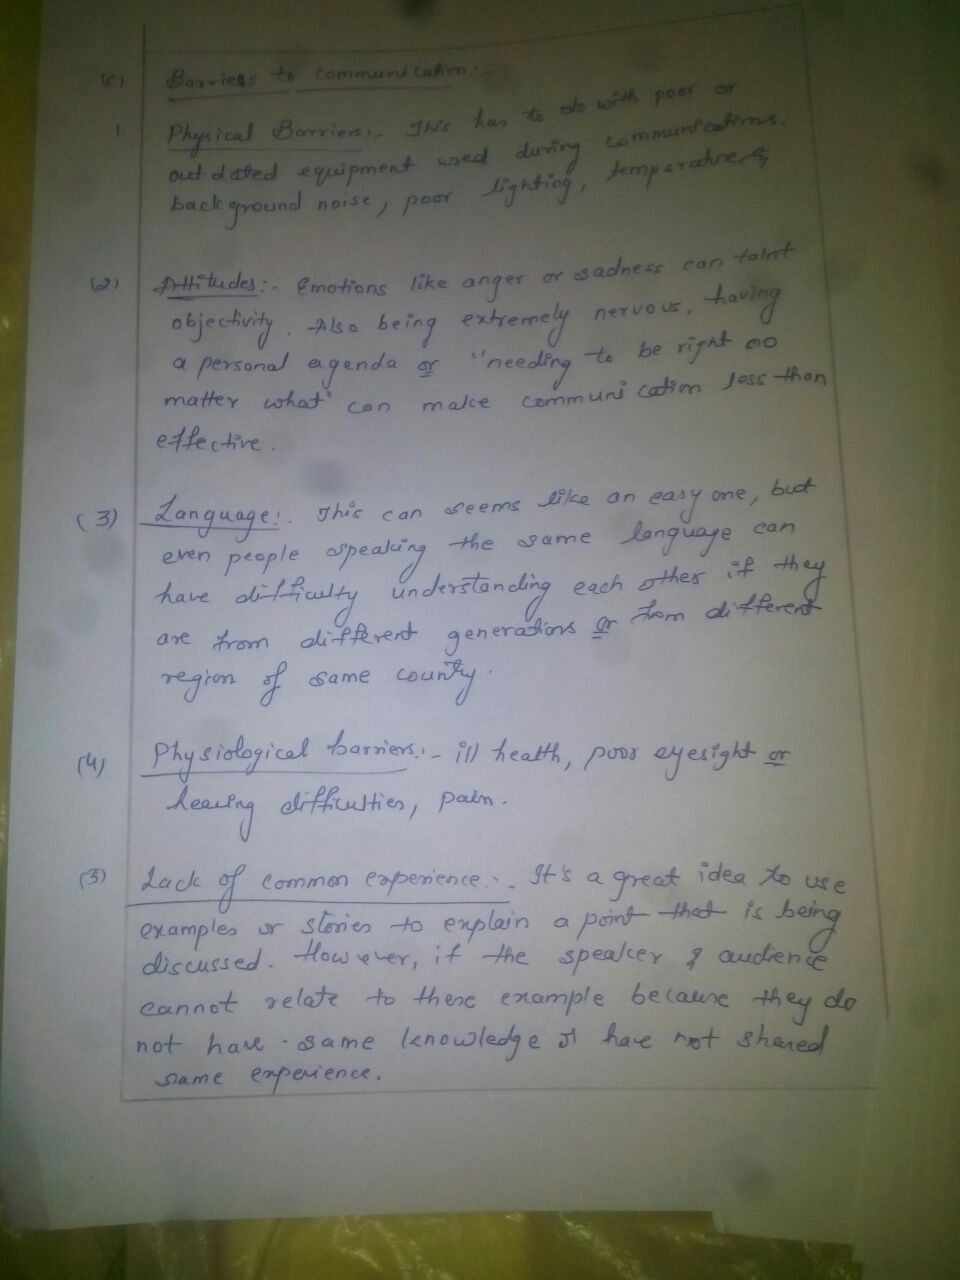 (c) Barriers to communication:-
1. Physical Barriers:- This has to do with poor or
out dated equipment used during communications.
background noise, poor lighting, temperature &
(2) Attitudes:- Emotions like anger or sadness can taint
objectivity. Also being extremely nervous, having
a personal agenda or "needing to be right no
matter what" can make communication less than
effective.
(3) Language:. This can seems like an easy one, but
even people speaking the same language can
have difficulty understanding each other if they
are from different generations or from different
region of same county.
(4) Physiological barriers:- ill health, poor eyesight or
hearing difficulties, pain.
(5) Lack of common experience:. It's a great idea to use
examples or stories to explain a point that is being
discussed. However, if the speaker & audience
cannot relate to these example because they do
not have same knowledge or have not shared
same experience.